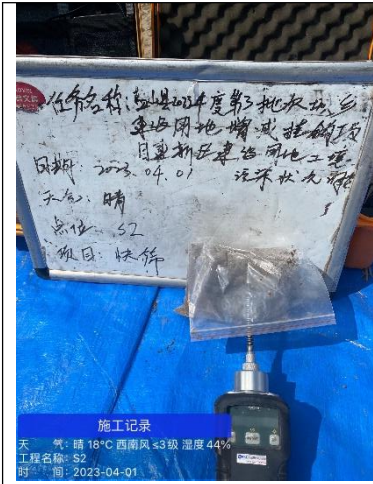 任务名称:盐山县2022年度第3批次城乡
建设用地增减挂钩项
目建新区建设用地土壤
日期 2023.04.01 污染状况调查
天气:晴
点位 S2
项目:快筛
施工记录
天 气: 晴 18°C 西南风 ≤3级 湿度 44%
工程名称: S2
时 间: 2023-04-01